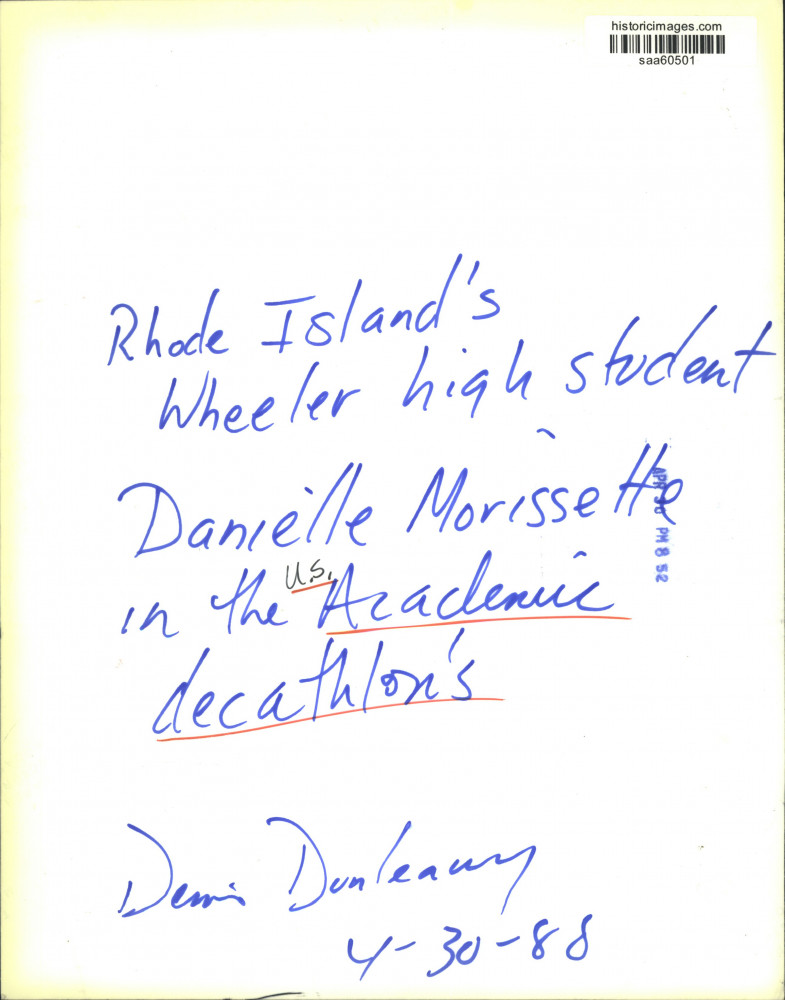 historicimages.com
saa60501
Rhode Island's
Wheeler high student
Danielle Morissette
APR 30 PM 8 52
in the U.S. Academic
decathlon's
Dennis Dunleavy
4-30-88